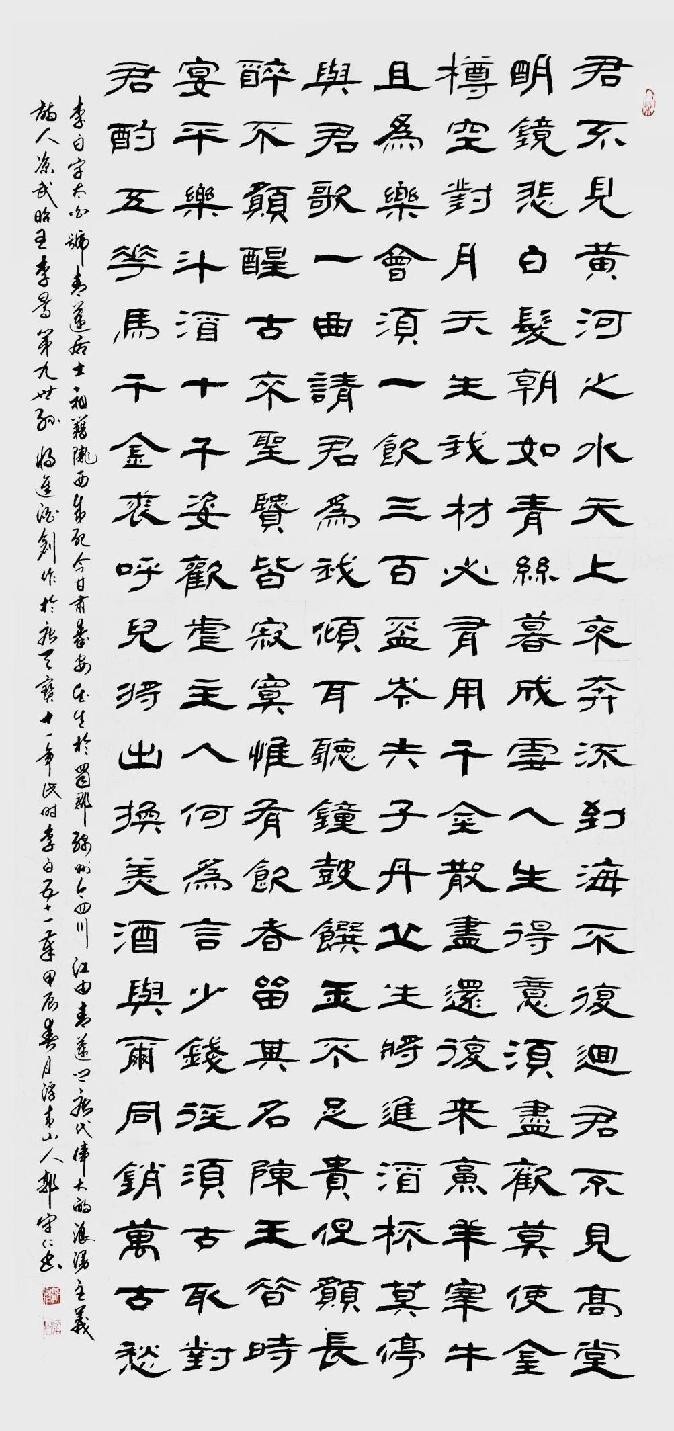 君不見黃河之水天上來奔流到海不復迴君不見高堂
明鏡悲白髮朝如青絲暮成雪人生得意須盡歡莫使金
樽空對月天生我材必有用千金散盡還復来烹羊宰牛
且為樂會須一飲三百盃岑夫子丹丘生將進酒杯莫停
與君歌一曲請君為我傾耳聽鐘鼓饌玉不足貴但願長
醉不願醒古來聖賢皆寂寞惟有飲者留其名陳王昔時
宴平樂斗酒十千恣歡虐主人何為言少錢徑須古取對
君酌五花馬千金裘呼兒將出換美酒與爾同銷萬古愁
李白字太白號青蓮居士祖籍隴西成紀今甘肅秦安生於蜀郡綿州今四川江由青蓮唐代偉大的浪漫主義
詩人涼武昭王李暠第九世孫將進酒創作於唐天寶十一年此時李白五十一歲甲辰春月浮來山人郭守仁書